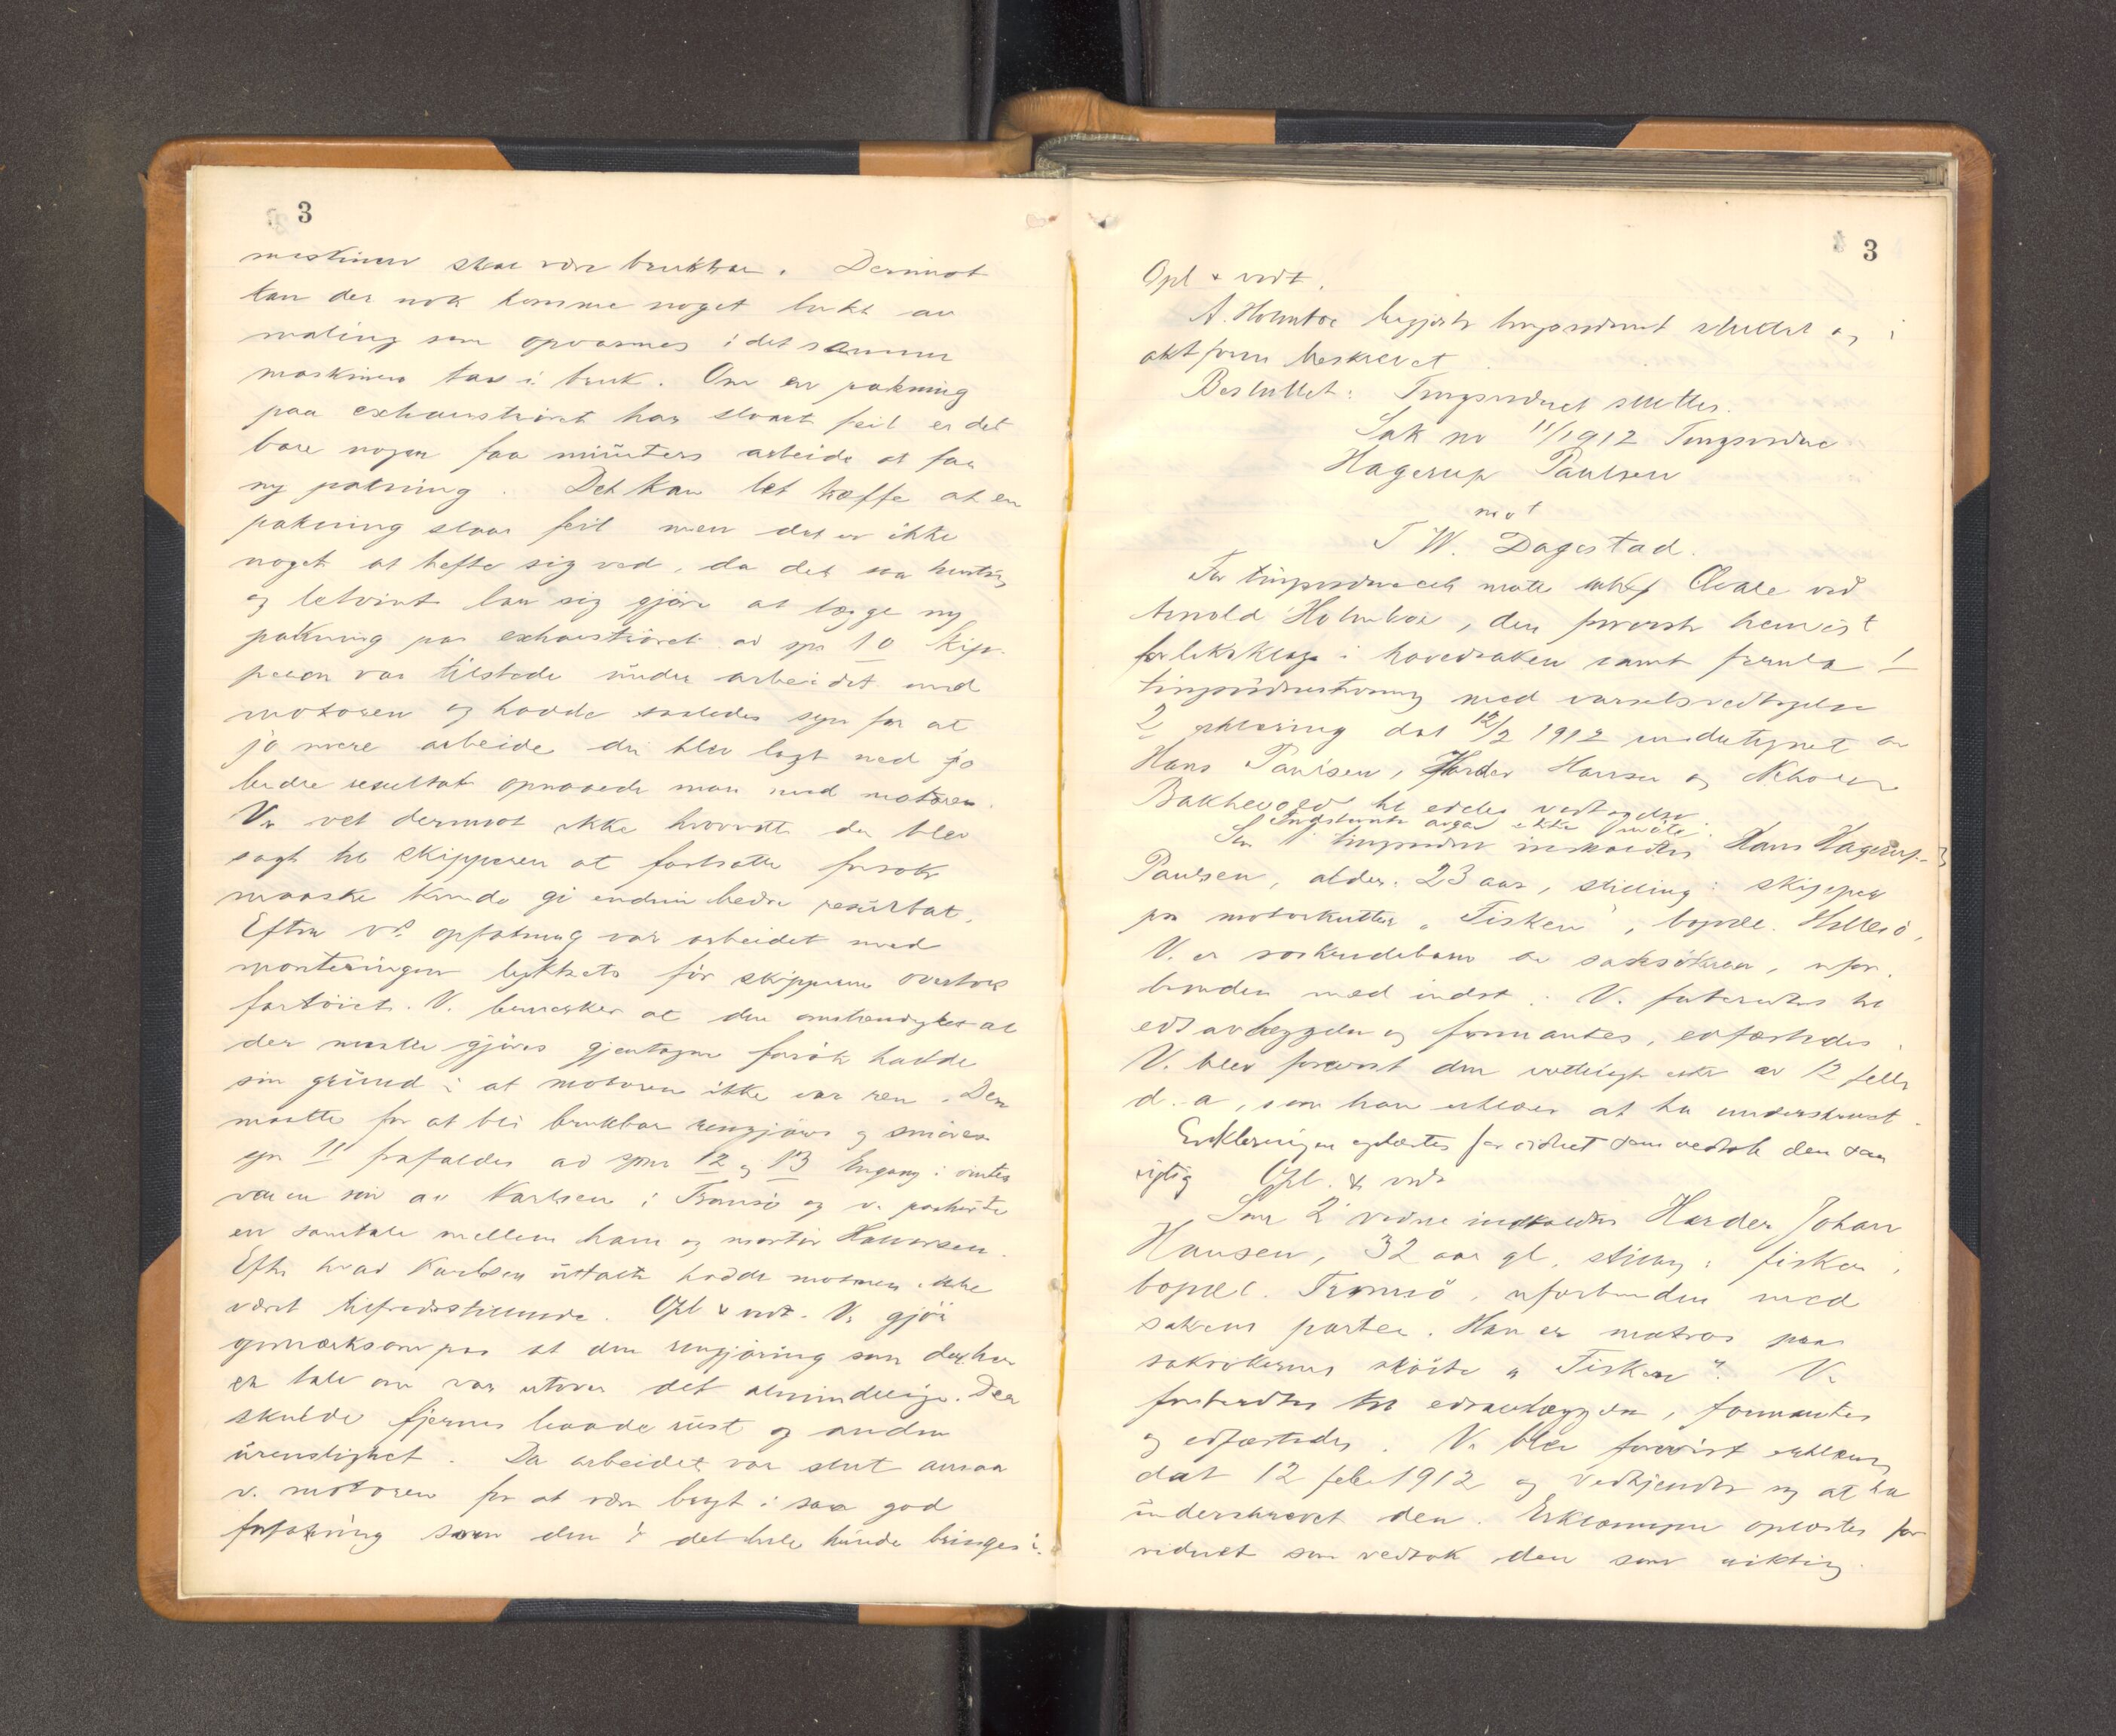 3
maskinen skal være brukbar. Derimot
kan der nok komme noget lukt av
maling som opvarmes i det samme
maskinen tas i bruk. Om en pakning
paa exhaustrøret har slaaet feil er det
bare nogen faa minüters arbeide at faa
ny pakning. Det kan let træffe at en
pakning slaar feil men det er ikke
noget at hefte sig ved, da det saa hurtig
og letvint lar sig gjøre at lægge ny
pakning paa exhaustrøret. ad spm 10 Skip-
peren var tilstede ünder arbeidet med
motoren og hadde saaledes syn for at
jo mere arbeide der blev lagt ned jo
bedre resultat opnaaede man med motoren.
V. vet derimot ikke hvorvitt der blev
sagt til skipperen at fortsatte forsøk
maaske kunde gi endnu bedre resültat.
Efter v's opfatning var arbeidet med
monteringen før skipperen overtok
fartøiet. V. bemerker at den omstændighet at
der maatte gjøres gjentagne forsøk hadde
sin gründ i at motoren ikke var ren. Den
maatte for at bli brukbar rengjøres og smøres
spm 11 frafaldes ad spm 12 og 13 Engang i vinter
var en søn av Karlsen i Tromsø og v. paahørte
en samtale mellem ham og mortør Halvorsen.
Efter hvad Karlsen üttalte hadde motoren ikke
været tilfredsstillende. Opl & vedt. V. gjør
opmerksom paa at den rengjøring som der her
er tale om var utover det almindelige. Der
skulde fjernes baade rüst og anden
ürenslighet. Da arbeidet var slut ansaa
v. motoren for at være bragt i saa god
forfatning som den i det hele künde bringes i.
3
Opl & vedt.
A. Holmboe begjærte tingsvidnet sluttet og i
aktform beskrevet.
Besluttet: Tingsvidnet sluttes.
Sak no 11/1912 Tingsvidne
Hagerup Paulsen
mot
T W. Dagestad.
For tingsvidnet møtte ved
Arnold Holmboe, den forviste bevist
forliksklage i hovedsaken samt fremla 1
med varselsvedtagelse
2 erklæring dat 12/2 1912 undertegnet av
Hans Paulsen, Harder Hansen og
til edelig vedtagelse
Indstevnte avgav ikke møte.
Som 1 tingsvidne Hans Hagerup
Paulsen, alder: 23 aar, stilling: skipper
paa motorkutter „Fisken", bopæl. Hillesø,
V. er søskendebarn av saksøkeren, ufor-
bunden med indst. V. forberedtes til
edsavlæggelse og formantes, edfæstedes.
V. blev forevist den erkl av 12 febr
d. a, som han erklærer at ha underskrevet.
Erklæringen oplæstes for vidnet som vedtok den som
rigtig Opl. & vedt
Som 2 vidne indkaldtes Harder Johan
Hansen, 32 aar gl. stilling: fisker,
bopæl. Tromsø, uforbunden med
sakens parter. Han er matros paa
saksøkernes skøite „Fisken". V.
forberedtes til edsavlæggelse, formantes
og edfæstedes. V. blev forevist erklæring
dat 12 febr 1912 og vedkjendte sig at ha
ünderskrevet den. Erklæringen oplæstes for
vidnet som vedtok den som riktig.